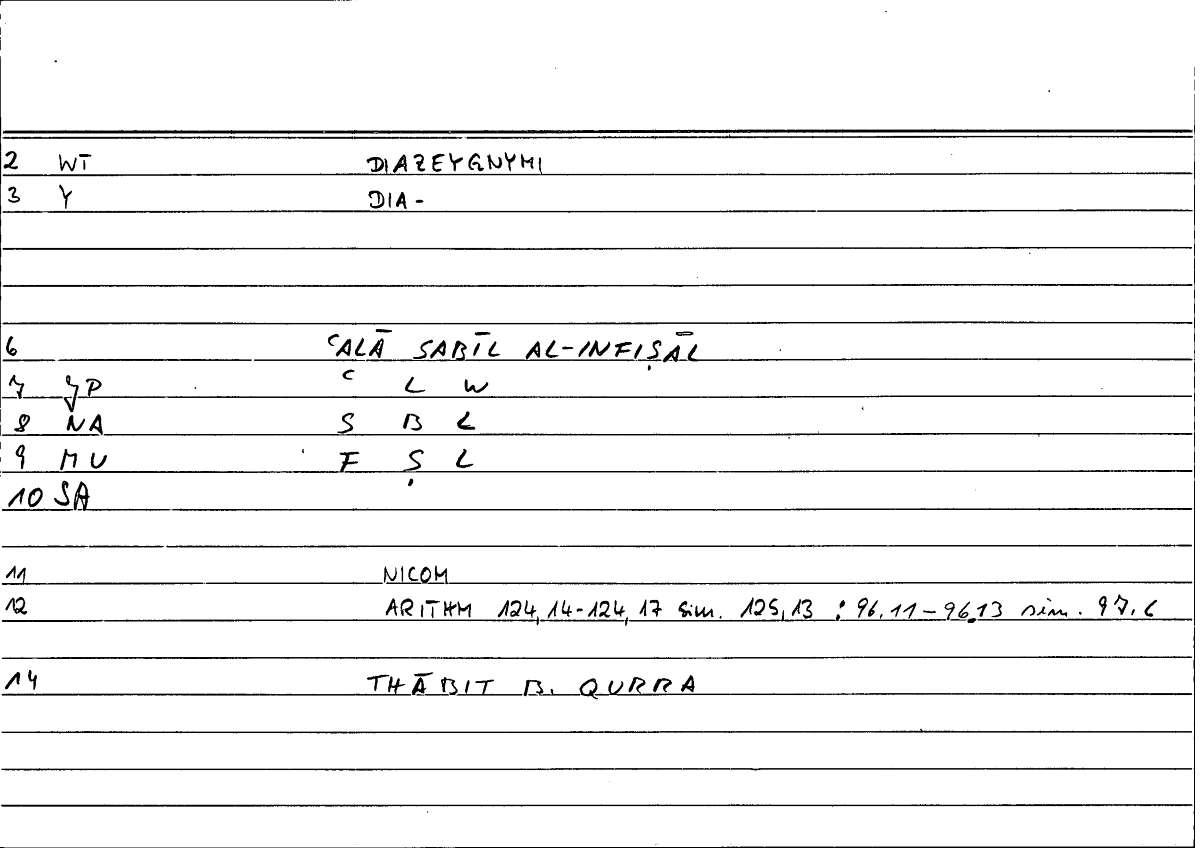 2 WT DIAZEYGNYMI
3 Y DIA-
6 ʿALĀ SABĪL AL-INFIṢĀL
7 JP ʿ L W
8 NA S B L
9 MU F Ṣ L
10 SA
11 NICOM
12 ARITHM 124,14-124,17 sim. 125,13 : 96.11-96.13 sim. 97.6
14 THĀBIT B. QURRA